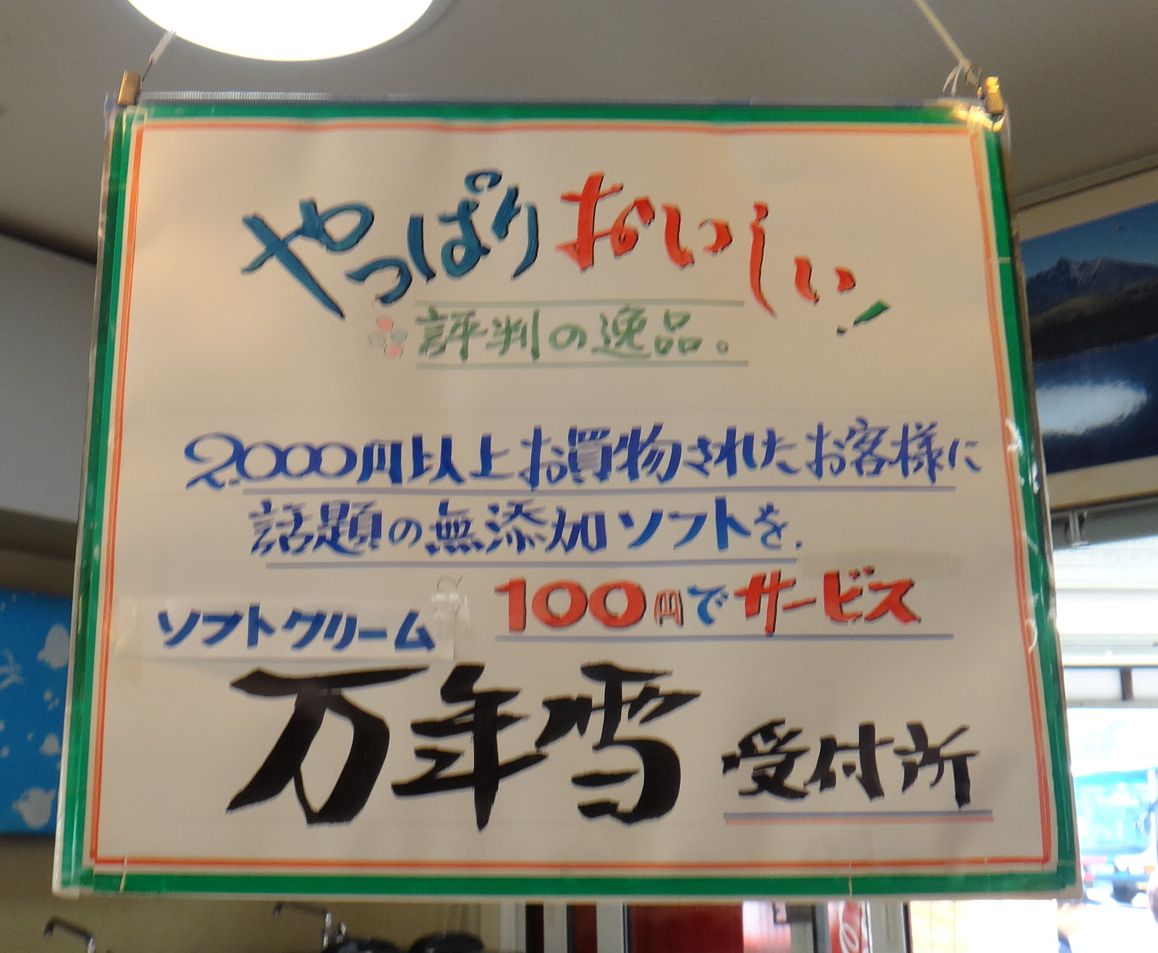 やっぱりおいしい!
評判の逸品。
2.000円以上お買物されたお客様に
話題の無添加ソフトを.
100円でサービス
ソフトクリーム
万年雪 受付所